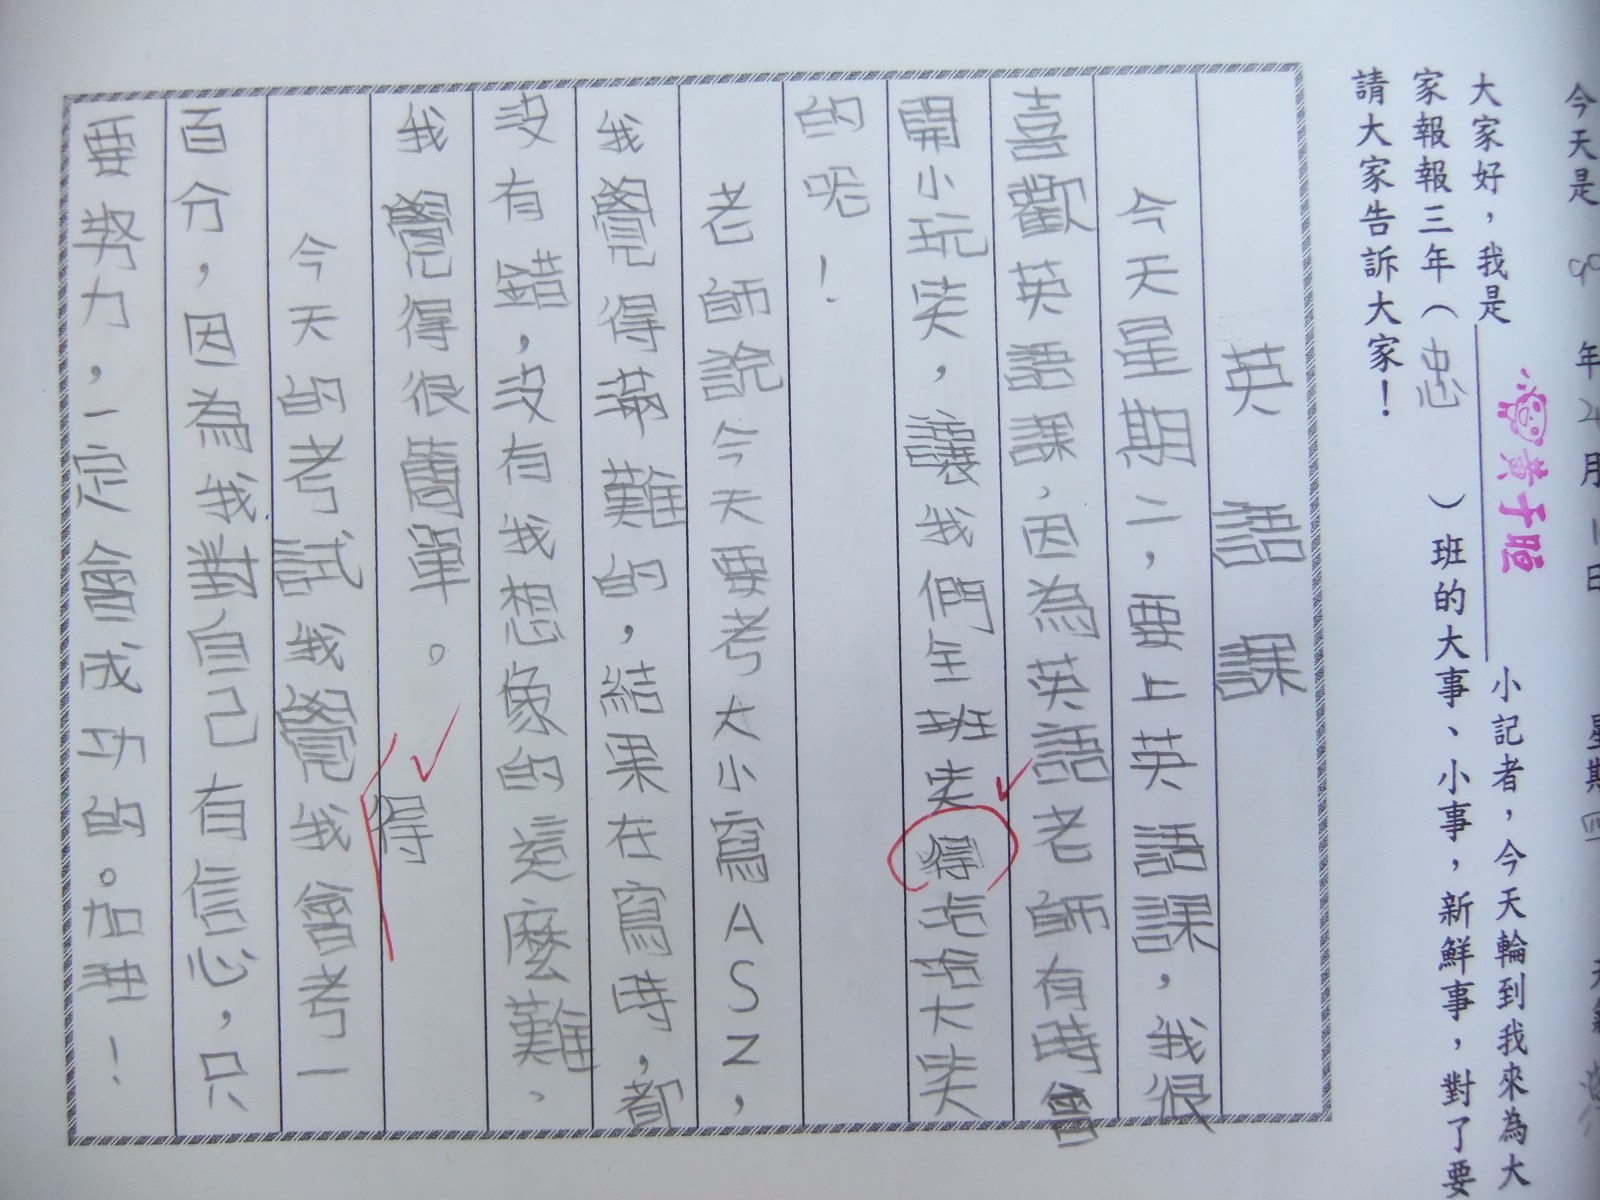 今天是 99 年 4 月 1 日 星期四 天氣
大家好，我是 小記者，今天輪到我來為大
家報報三年（忠）班的大事、小事，新鮮事，對了要
請大家告訴大家！
英語課
今天星期二，要上英語課，我很
喜歡英語課、因為英語老師有時會
開小玩笑，讓我們全班笑得哈哈大笑
的呢！
老師說今天要考大小寫ASZ，
我覺得滿難的，結果在寫時，都
沒有錯，沒有我想像的這麼難、
我覺得很簡單。
得
今天的考試我覺我會考一
百分，因為我對自己有信心，只
要努力，一定會成功的。加油！